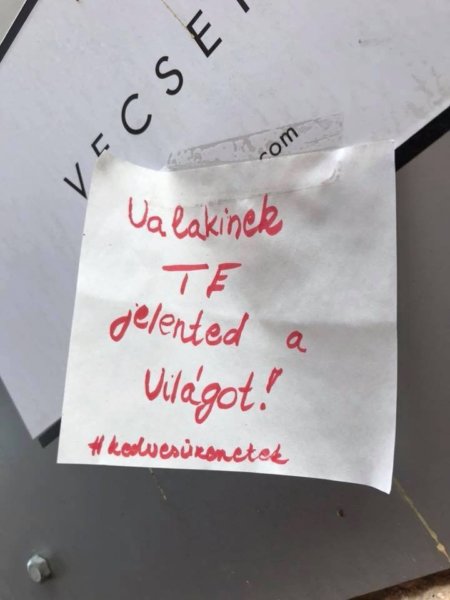 VECSE
.com
Valakinek
TE
jelented a
Világot!
#kedvesüzenetek